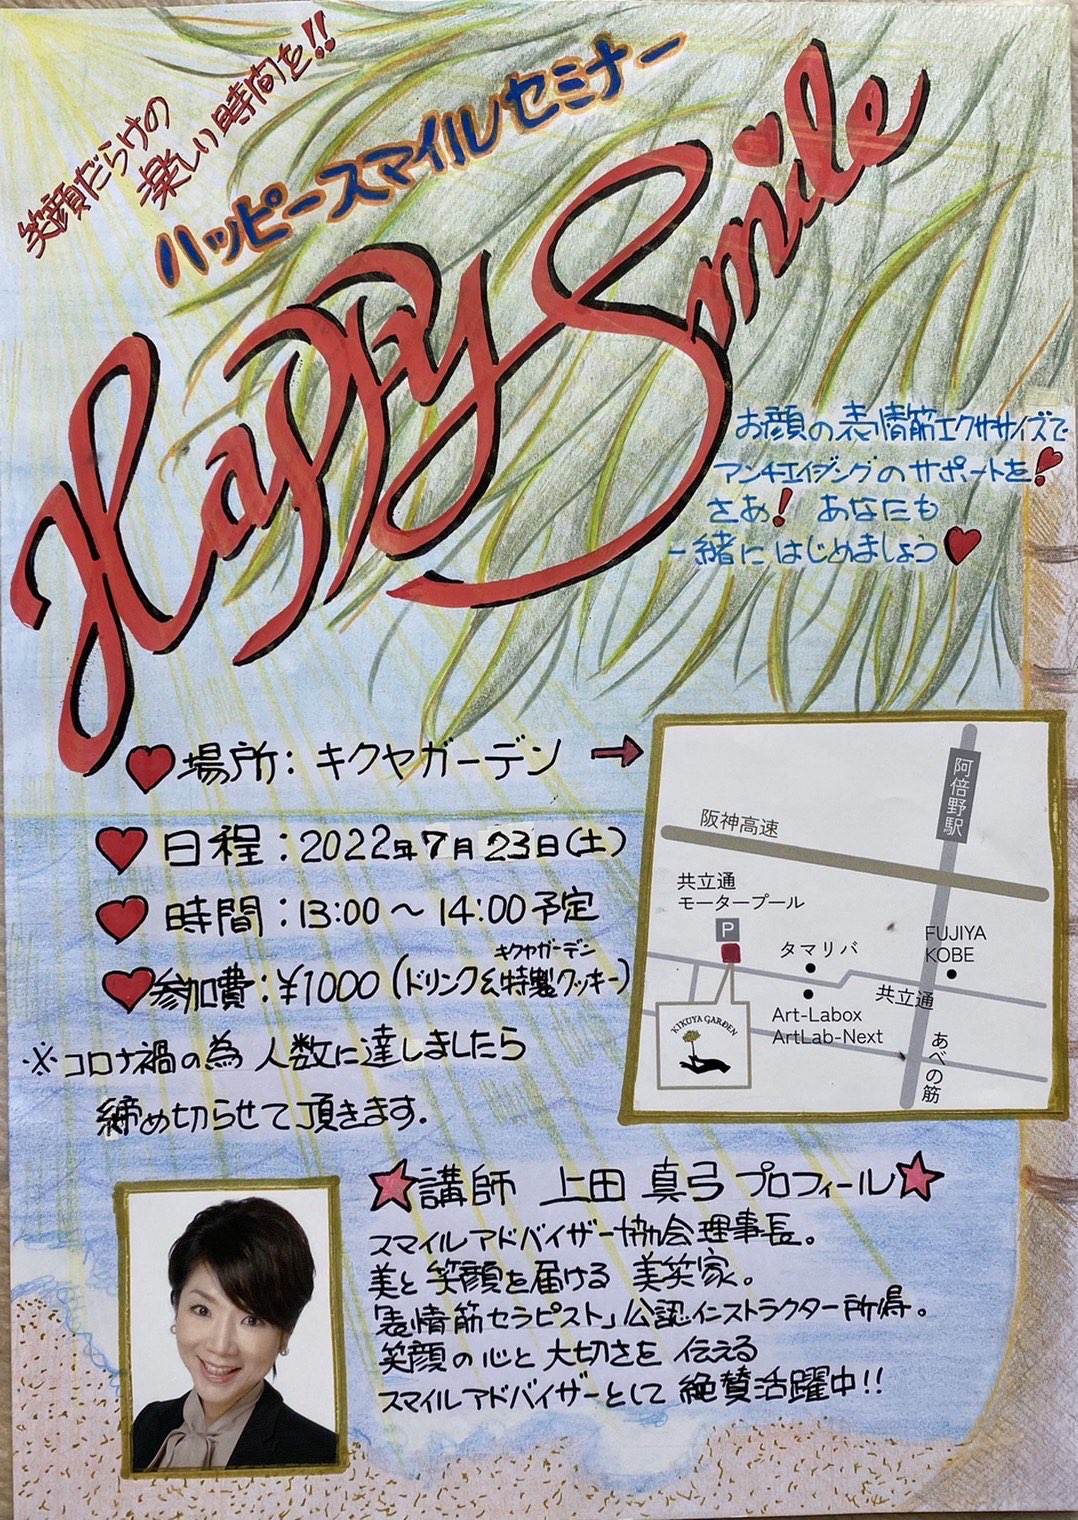 笑顔だらけの
楽しい時間を!!
ハッピースマイルセミナー
Happy Smile
お顔の表情筋エクササイズで
アンチエイジングのサポートを!
さあ! あなたも
一緒にはじめましょう
場所: キクヤガーデン →
日程:2022年7月23日(土)
時間:13:00〜14:00予定
キクヤガーデン
参加費:¥1000(ドリンク&特製クッキー)
※コロナ禍の為 人数に達しましたら
締め切らせて頂きます.
阿倍野駅
阪神高速
共立通
モータープール
P
タマリバ
FUJIYA
KOBE
共立通
Art-Labox
ArtLab-Next
KIKUYA GARDEN
あべの筋
講師 上田 真弓 プロフィール
スマイルアドバイザー協会理事長。
美と笑顔を届ける 美笑家。
「表情筋セラピスト」公認インストラクター所得。
笑顔の心と大切さを伝える
スマイルアドバイザーとして絶賛活躍中!!